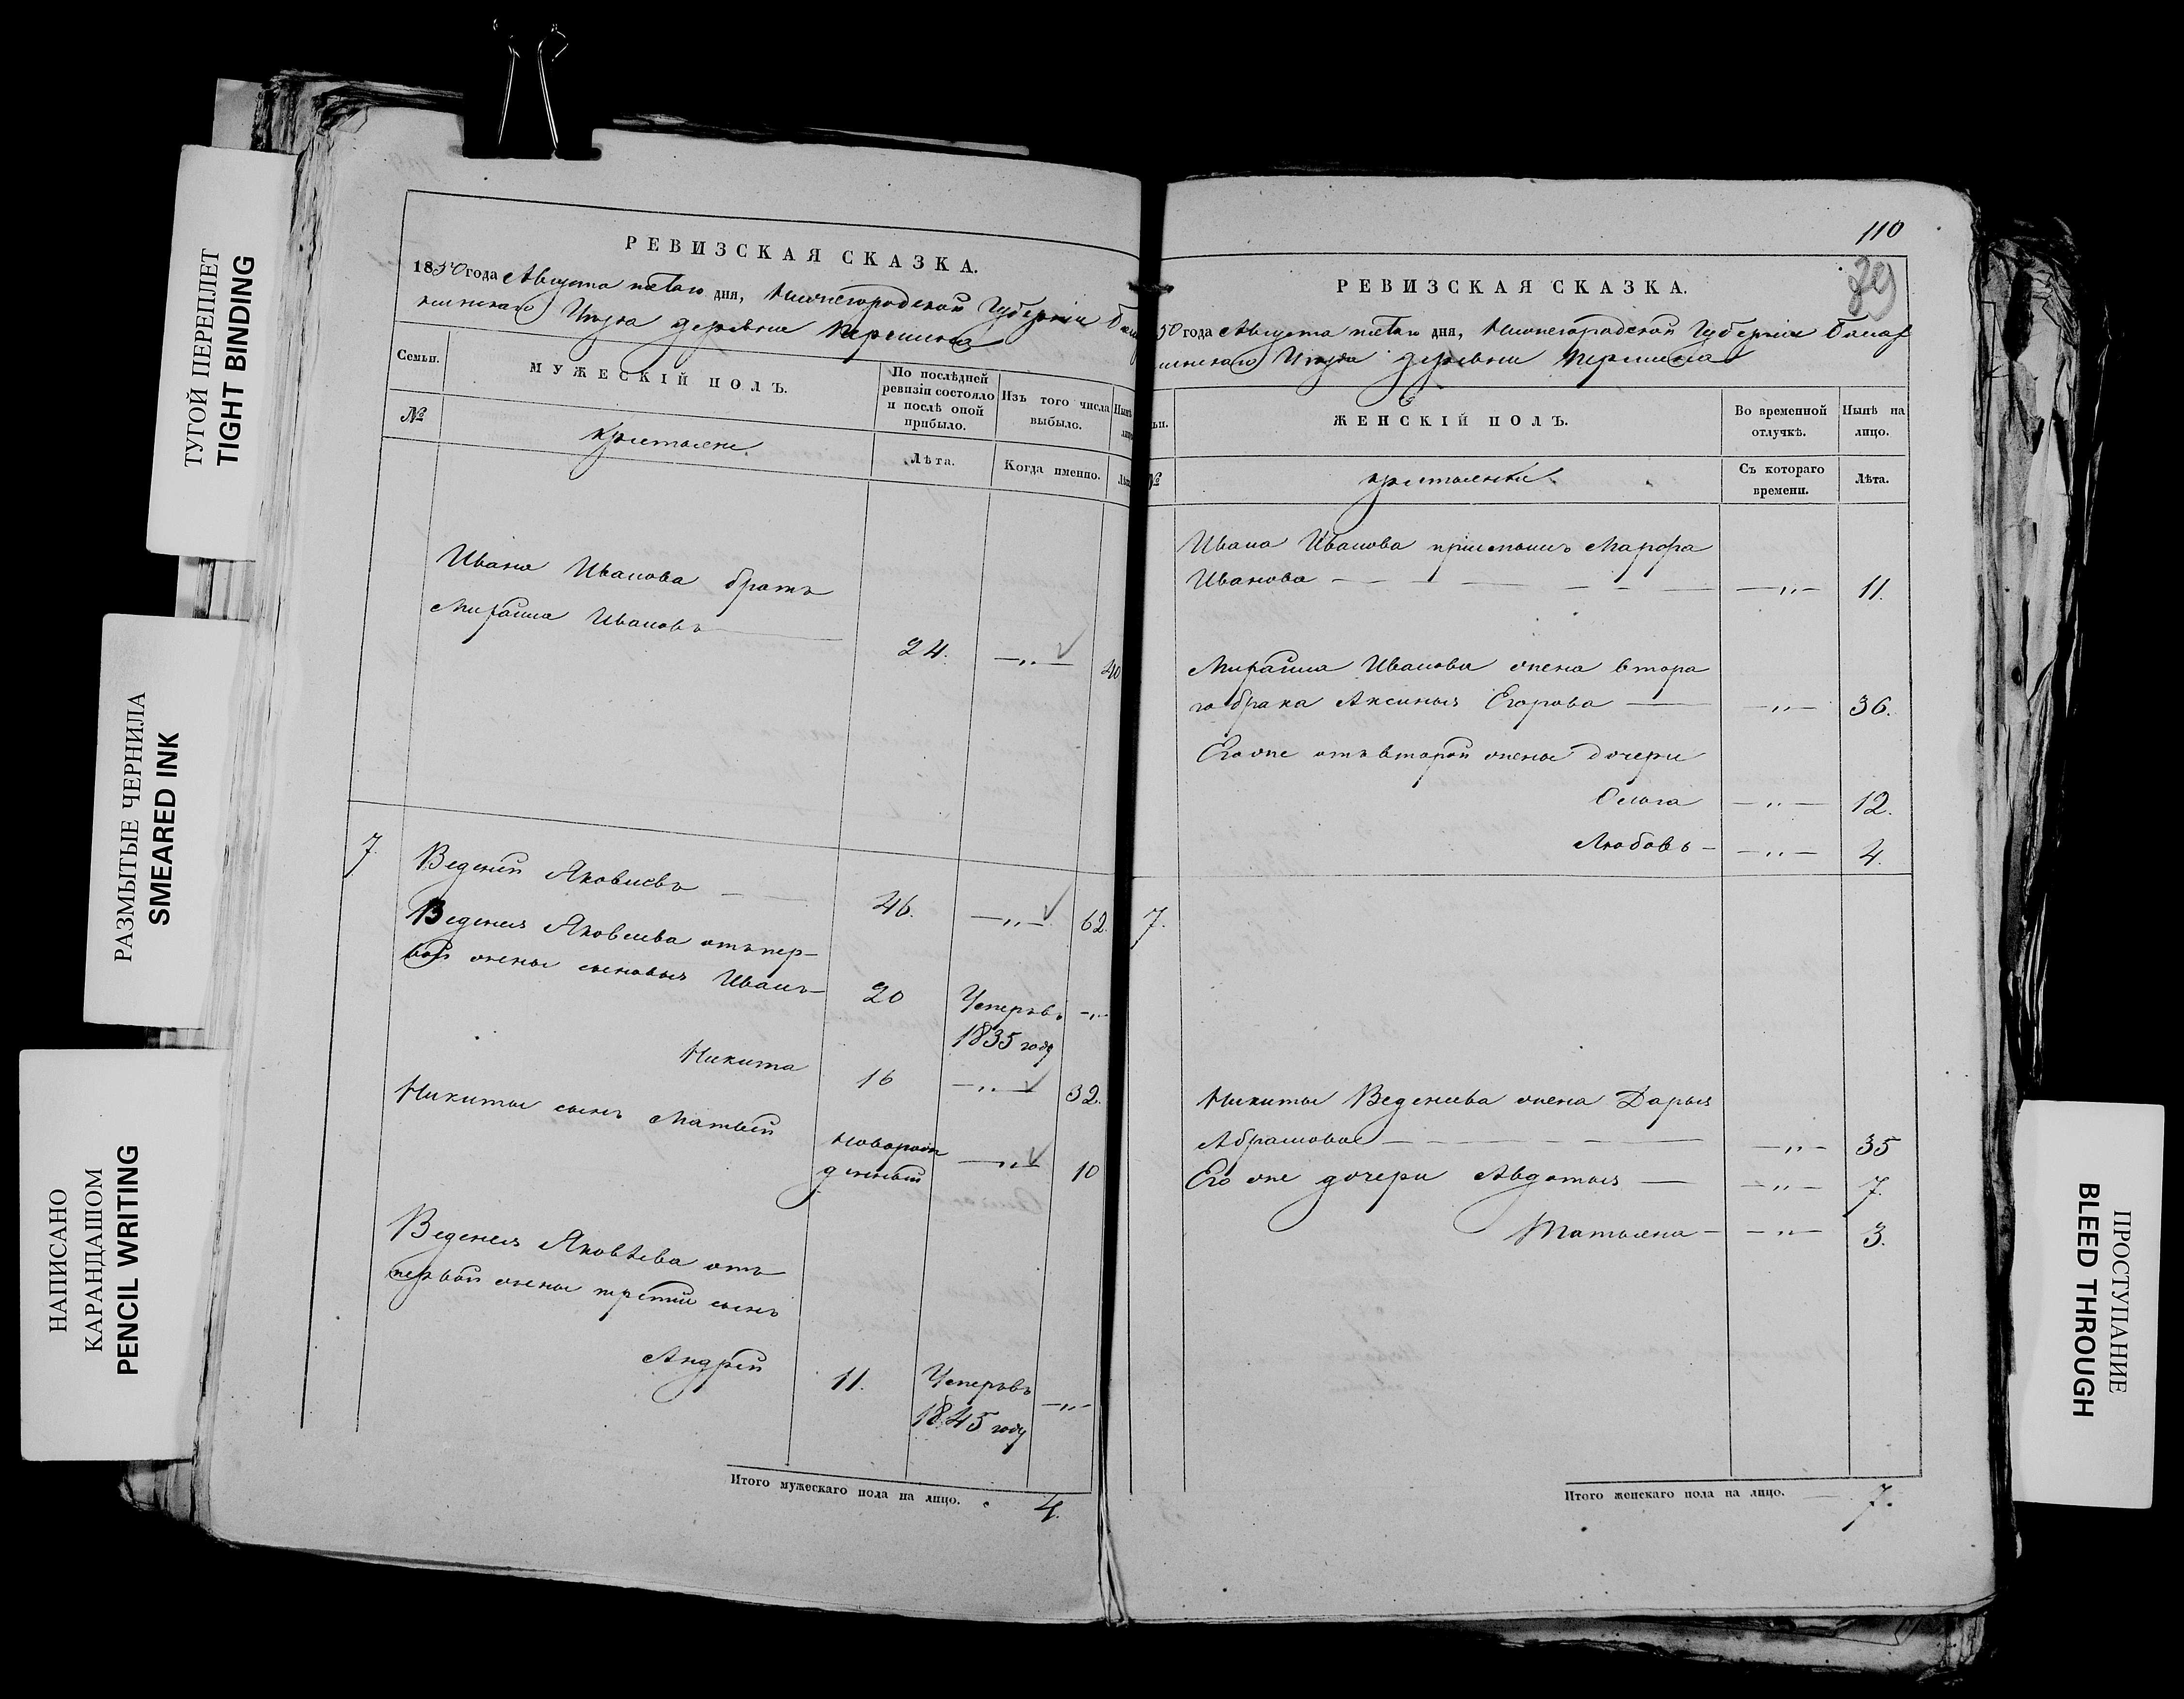 ТУГОЙ ПЕРЕПЛЕТ
TIGHT BINDING
РАЗМЫТЫЕ ЧЕРНИЛА
SMEARED INK
НАПИСАНО
КАРАНДАШОМ
PENCIL WRITING
РЕВИЗСКАЯ СКАЗКА.
1850 года Августа пятаго дня, Нижегородской Губерніи
деревни
Семьи.
МУЖЕСКІЙ ПОЛЪ.
По послѣдней
ревизіи состояло
и послѣ оной
прибыло.
Изъ того числа
выбыло.
№
крестьяне
Лѣта.
Когда именно.
Ивана Иванова братъ
Иванов
24.
—„—
40
7
Веденей Яковлевъ
46.
—„—
62.
Веденея Яковлева отъ пер-
вой жены сыновья Иванъ
20
Умеръ въ
1835 году
-„-
Никита
16
—„—
32.
Никиты сынъ Матвей
Новорож
денный
—„—
10
Веденея Яковлева отъ
первой жены третий сынъ
Андрей
11.
Умеръ въ
1845 году
—„—
Итого мужескаго пола на лицо.
4.
110
79
РЕВИЗСКАЯ СКАЗКА.
50 года Августа пятаго дня, Нижегородской Губерніи Балах
нинскаго деревни
ЖЕНСКІЙ ПОЛЪ.
Во временной
отлучкѣ.
Нынѣ на
лицо.
№
крестьянки
Съ котораго
времени.
Лѣта.
Ивана Иванова приемышъ Марфа
Иванова
—„—
11.
Иванова жена втора
го брака Аксинья Егорова
—„—
36.
Его же отъ второй жены дочери
Ольга
—„—
12.
Любовь
—„—
4.
7.
Никиты Веденеева жена Дарья
Абрамова
—„—
35
Его же дочери Авдотья
—„—
7.
Татьяна
—„—
3.
Итого женскаго пола на лицо.
7.
ПРОСТУПАНИЕ
BLEED THROUGH